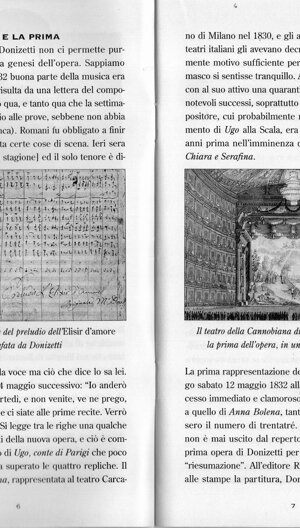 E LA PRIMA
Donizetti non ci permette pur-
a genesi dell'opera. Sappiamo
32 buona parte della musica era
risulta da una lettera del compo-
o qua, e tanto qua che la settima-
io alle prove, sebbene non abbia
nca). Romani fu obbligato a finir
ta certe cose di scena. Ieri sera
stagione] ed il solo tenore è di-
e del preludio dell'Elisir d'amore
afata da Donizetti
la voce ma ciò che dice lo sa lei.
4 maggio successivo: "Io anderò
artedi, e non venite, ve ne prego,
e ci siate alle prime recite. Verrò
Si legge tra le righe una qualche
ti della nuova opera, e ciò è com-
o di Ugo, conte di Parigi che poco
a superato le quattro repliche. Il
na, rappresentata al teatro Carca-
6
4
no di Milano nel 1830, e gli a
teatri italiani gli avevano decr
mente motivo sufficiente per
masco si sentisse tranquillo. A
con al suo attivo una quarant
notevoli successi, soprattutto
positore, cui probabilmente r
mento di Ugo alla Scala, era
anni prima nell'imminenza d
Chiara e Serafina.
Il teatro della Cannobiana di
la prima dell'opera, in un
La prima rappresentazione de
go sabato 12 maggio 1832 all
cesso immediato e clamoroso
a quello di Anna Bolena, tant
sero il numero di trentatré.
non è mai uscito dal reperto
prima opera di Donizetti per
"riesumazione". All'editore R
alle stampe la partitura, Don
7